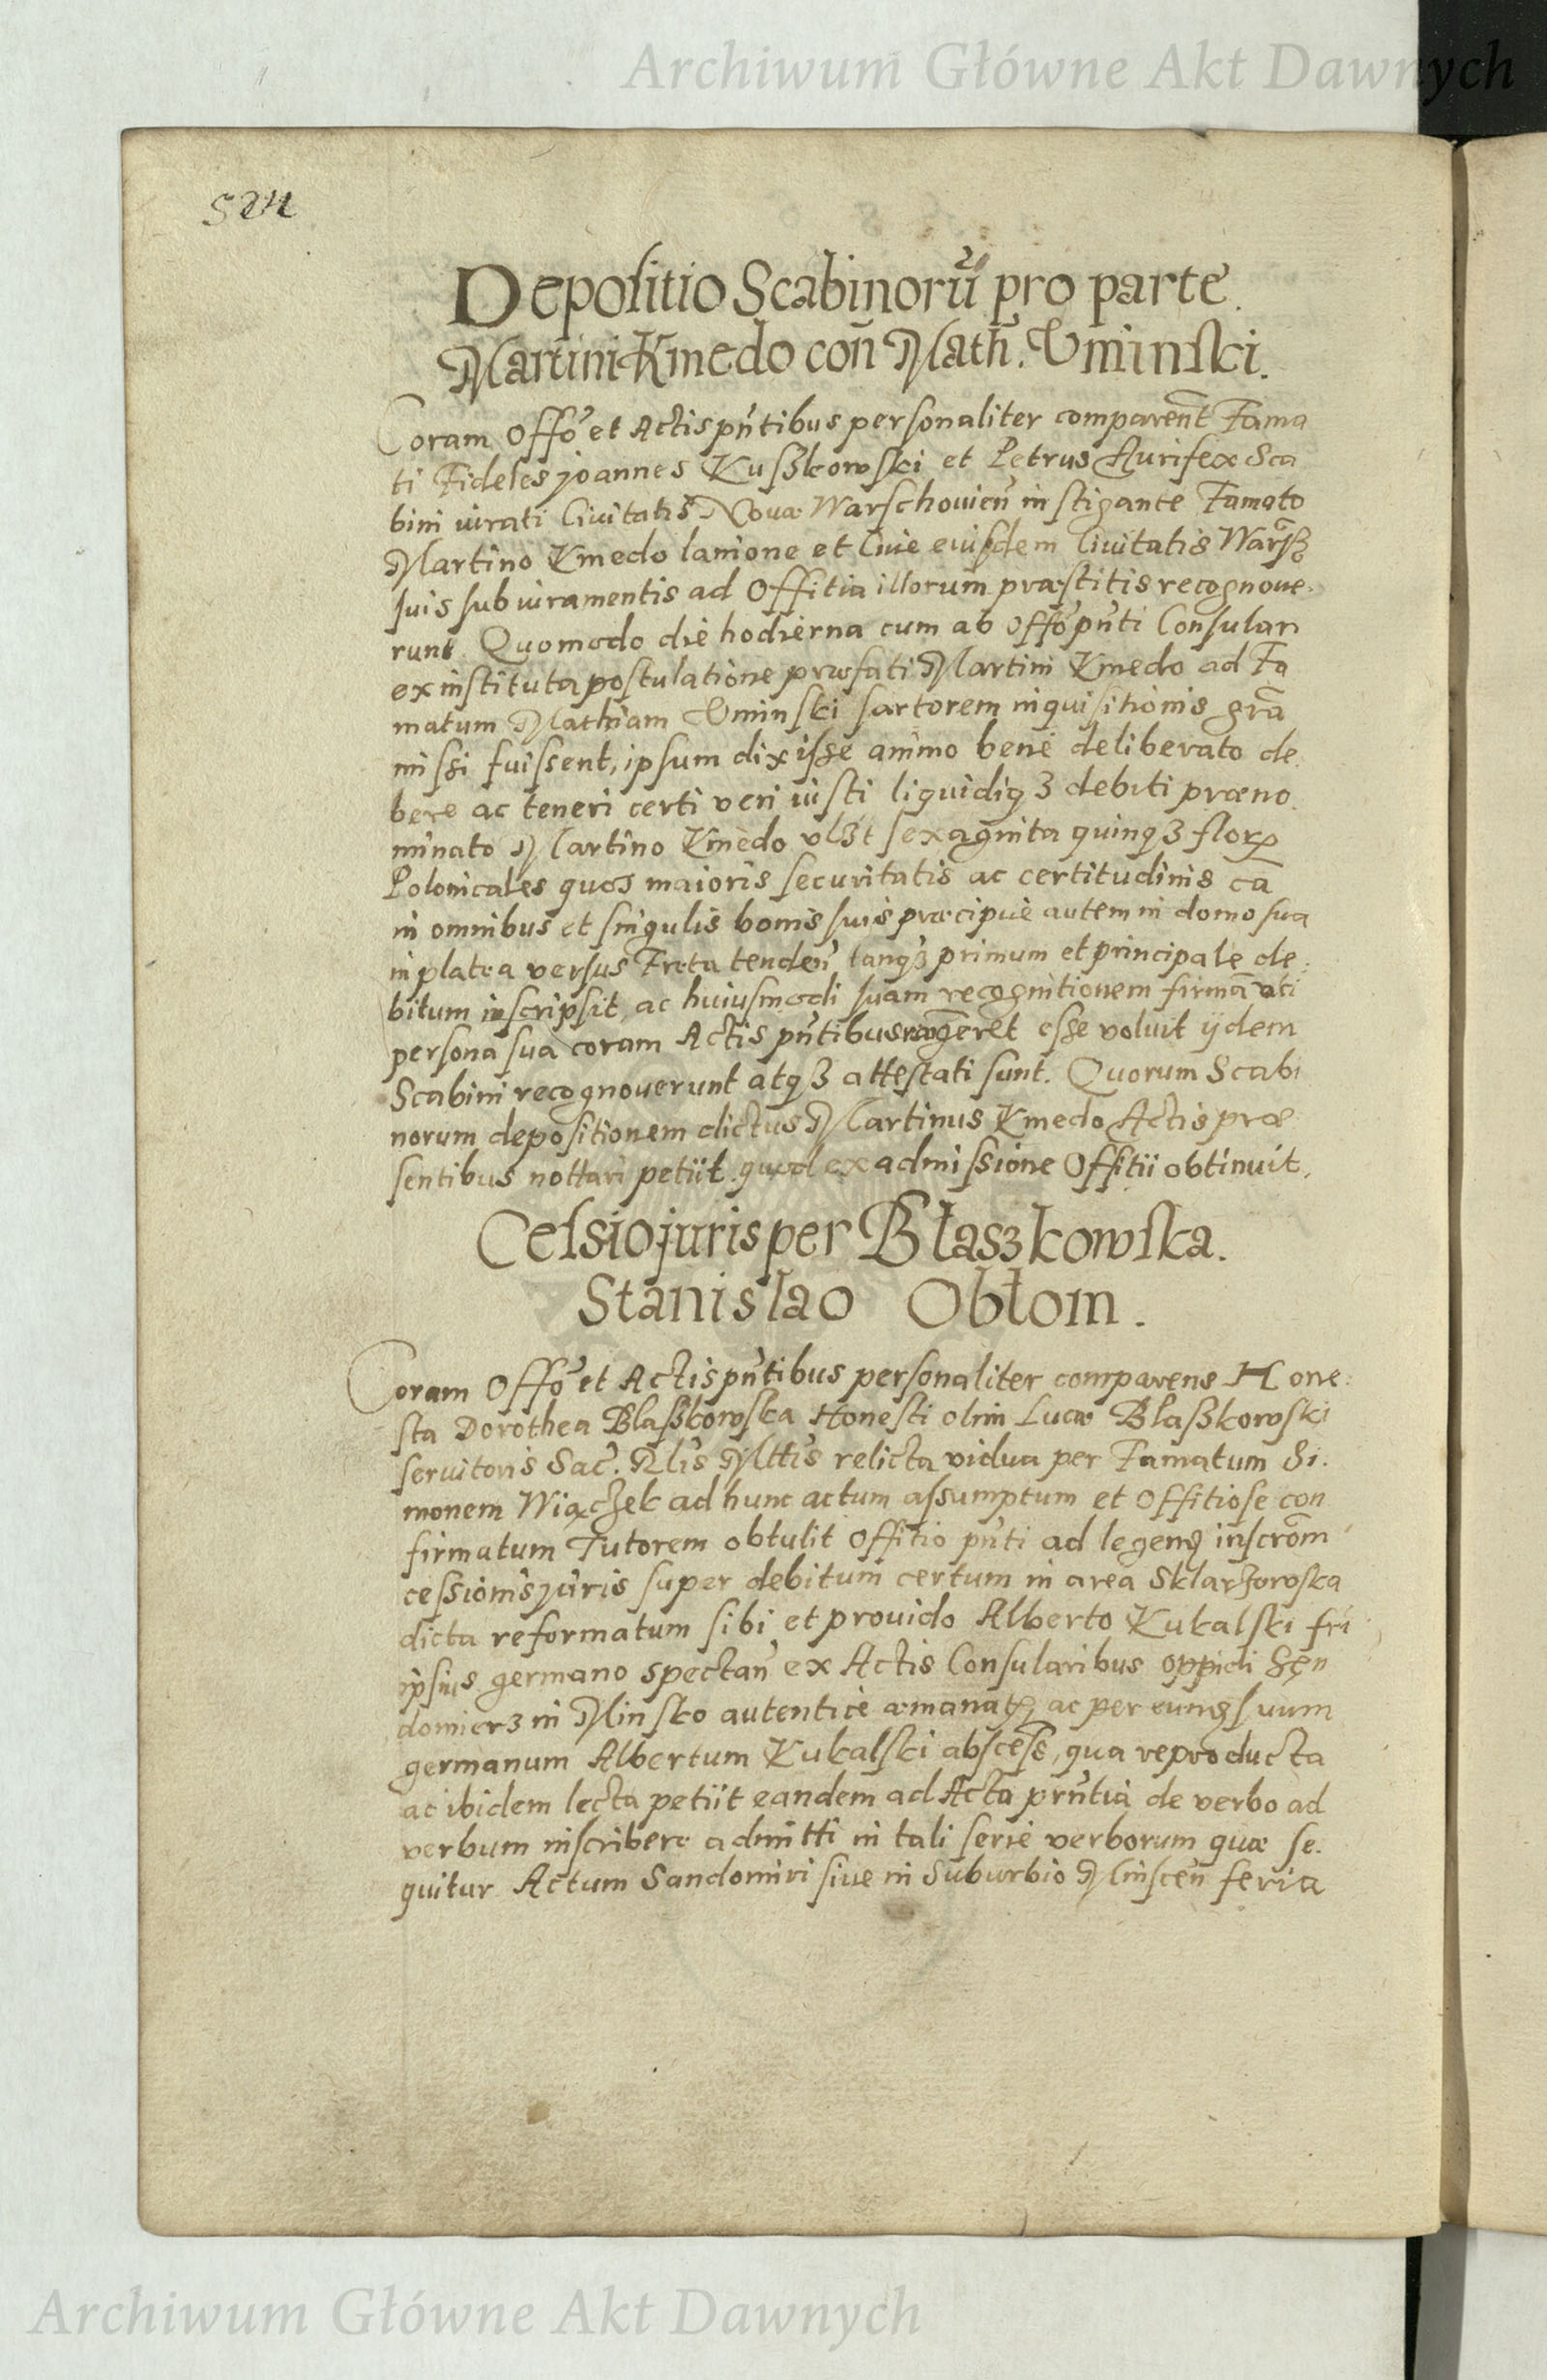 Archiwum Główne Akt Dawnych
524
Depositio Scabinorū pro parte
Martini Kmedo con̄ Math. Vminski.
Coram Offō et Actis pn̄tibus personaliter comparen̄t Fama
ti Fideles Joannes Kuszkowski et Petrus Aurifex Sca
bini iurati Ciuitatis Nouæ Warschouien̄ instigante Famato
Martino Kmedo lanione et Ciue eiusdem Ciuitatis
suis sub iuramentis ad Offitia illorum præstitis recognoue.
runt. Quomodo die hodierna cum ab offō pn̄ti Consulari
ex instituta postulatione præfati Martini Kmedo ad Fa
matum Mathiam Vminski sartorem inquisitionis grā
missi fuissent, ipsum dixisse animo bene deliberato de.
bere ac teneri certi veri iusti liquidiqȝ debiti præno.
minato Martino Kmedo sexaginta quinqȝ florꝝ
Polonicales quos maioris securitatis ac certitudinis cā
in omnibus et singulis bonis suis præcipue autem in domo sua
in platea versus Freta tenden̄ tanqȝ primum et principale de:
bitum inscripsit, ac huiusmodi suam recognitionem firmā ac si
persona sua coram Actis pn̄tibus esse voluit ijdem
Scabini recognouerunt atqȝ attestati sunt. Quorum Scabi
norum depositionem dictus Martinus Kmedo Actis præ
sentibus nottari petiit. quod ex admissione Offitii obtinuit.
Cessio juris per Błaszkowska.
Stanislao Obłom.
Coram Offō et Actis pn̄tibus personaliter comparens Hone:
sta Dorothea Blaszkowska Honesti olim Lucæ Blaszkowski
seruitoris Sac̄. Rl̄is Mttis relicta vidua per Famatum Si.
monem Wiączek ad hunc actum assumptum et Offitiose con
firmatum Tutorem obtulit Offitio pn̄ti ad legenꝝ inscrōm
cessionis juris super debitum certum in area Sklarzowska
dicta reformatum sibi et prouido Alberto Kukalski fri
ipsius germano spectan̄ ex Actis Consularibus oppidi Sen
domierz in Minsko autentice æmanatꝝ ac per eunꝝ suum
germanum Albertum Kukalski abscess̄, qua reproducta
ac ibidem lecta petiit eandem ad Acta prn̄tia de verbo ad
verbum inscribere admitti in tali serie verborum quæ se.
quitur Actum Sandomiri siue in Suburbio Minscen̄ feria
Archiwum Główne Akt Dawnych